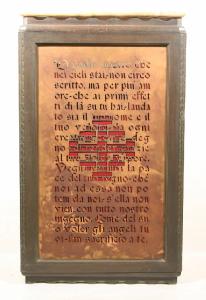 che
nei cieli stai, non circo
scritto, ma per piu am
ore che ai primi effet
ti di là su tu hai, lauda
to sia il tuo nome e il
tuo valore da ogni
crea degno
di render
al tuo dolce vapore.
Vegna la pa
ce del tuo regno che
noi ad essa non po
tem da noi, s'ella non
vien, con tutto nostro
ingegno. Come del su
o voler gli angeli tu
oi fan sacrificio a te.